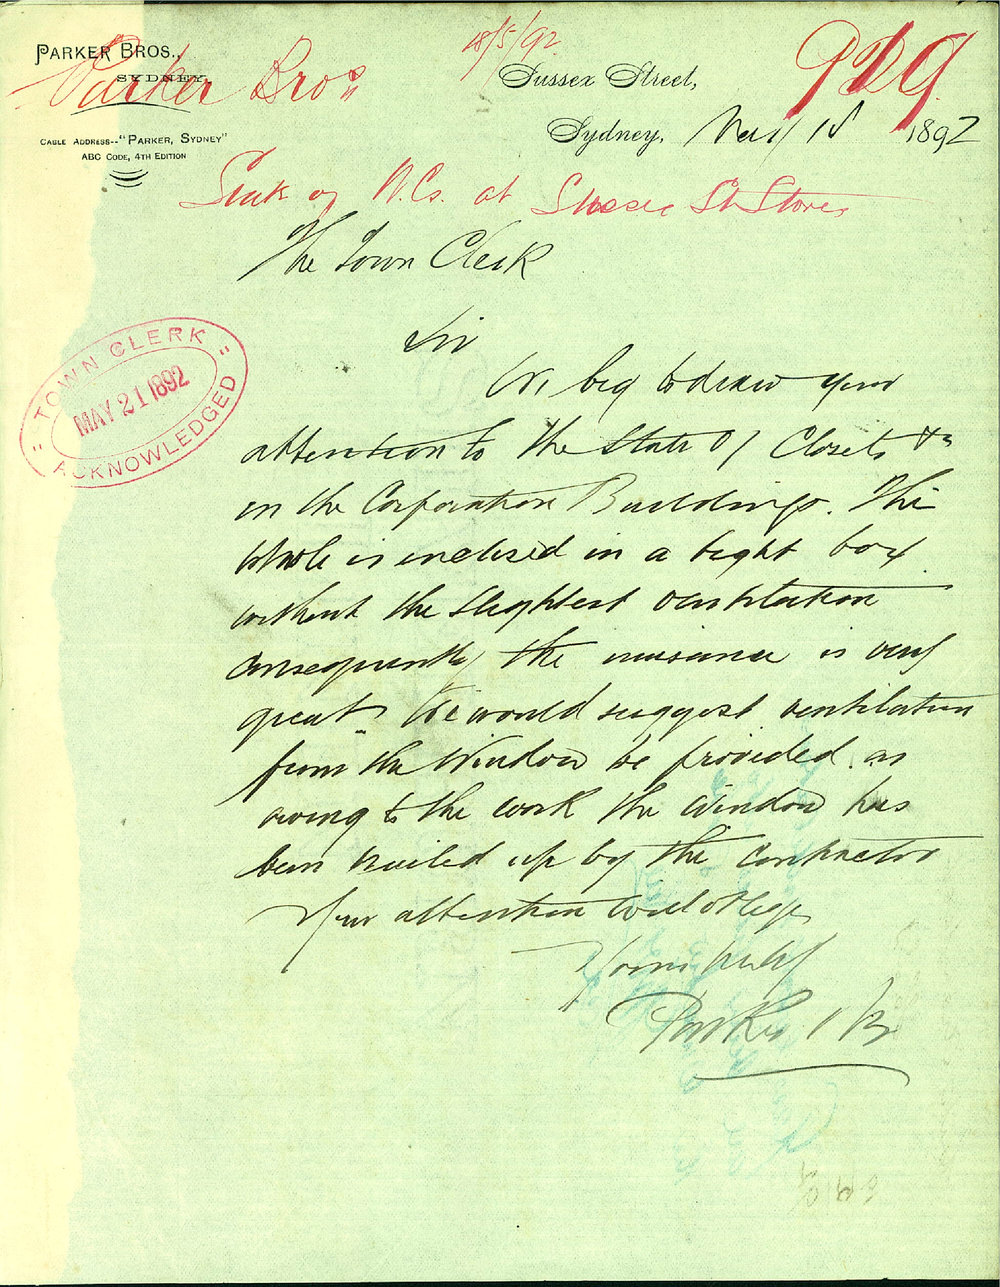 PARKER BROS.,
SYDNEY.
CABLE ADDRESS--"PARKER, SYDNEY"
ABC CODE, 4TH EDITION
Parker Bros
18/5/92
919
Sussex Street,
Sydney, May 18 1892
State of W.Cs. at Sussex St Stores
The Town Clerk
"TOWN CLERK"
MAY 21 1892
ACKNOWLEDGED
Sir
We beg to draw your
attention to the State of Closets &c
in the Corporation Buildings. The
whole is inclosed in a tight box
without the slightest ventilation
consequently the nuisance is very
great. We would suggest ventilation
from the Window be provided. as
owing to the work the window has
been nailed up by the contractor
Your attention will oblige
Yours truly
Parker Bros